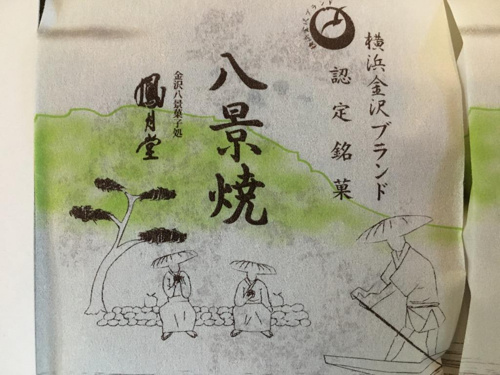 横浜金沢ブランド
認定銘菓
八景焼
金沢八景菓子処
鳳月堂